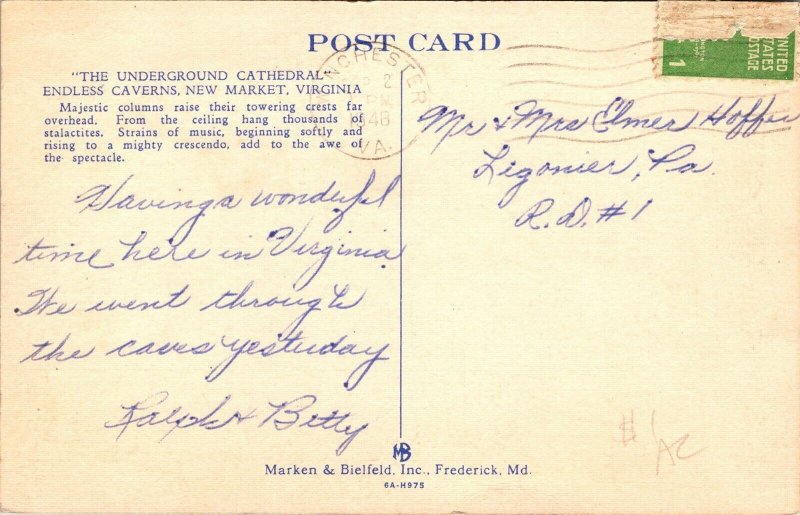 POST CARD
"THE UNDERGROUND CATHEDRAL"
ENDLESS CAVERNS, NEW MARKET, VIRGINIA
Majestic columns raise their towering crests far
overhead. From the ceiling hang thousands of
stalactites. Strains of music, beginning softly and
rising to a mighty crescendo, add to the awe of
the spectacle.
NCHESTER
2
PM
1946
VA.
UNITED
STATES
POSTAGE
1
Mr & Mrs Elmer Hoffer
Ligonier, Pa.
R.D. #1
Having a wonderful
time here in Virginia
We went through
the caves yesterday
Ralph & Betty
MB
Marken & Bielfeld, Inc., Frederick, Md.
6A-H975